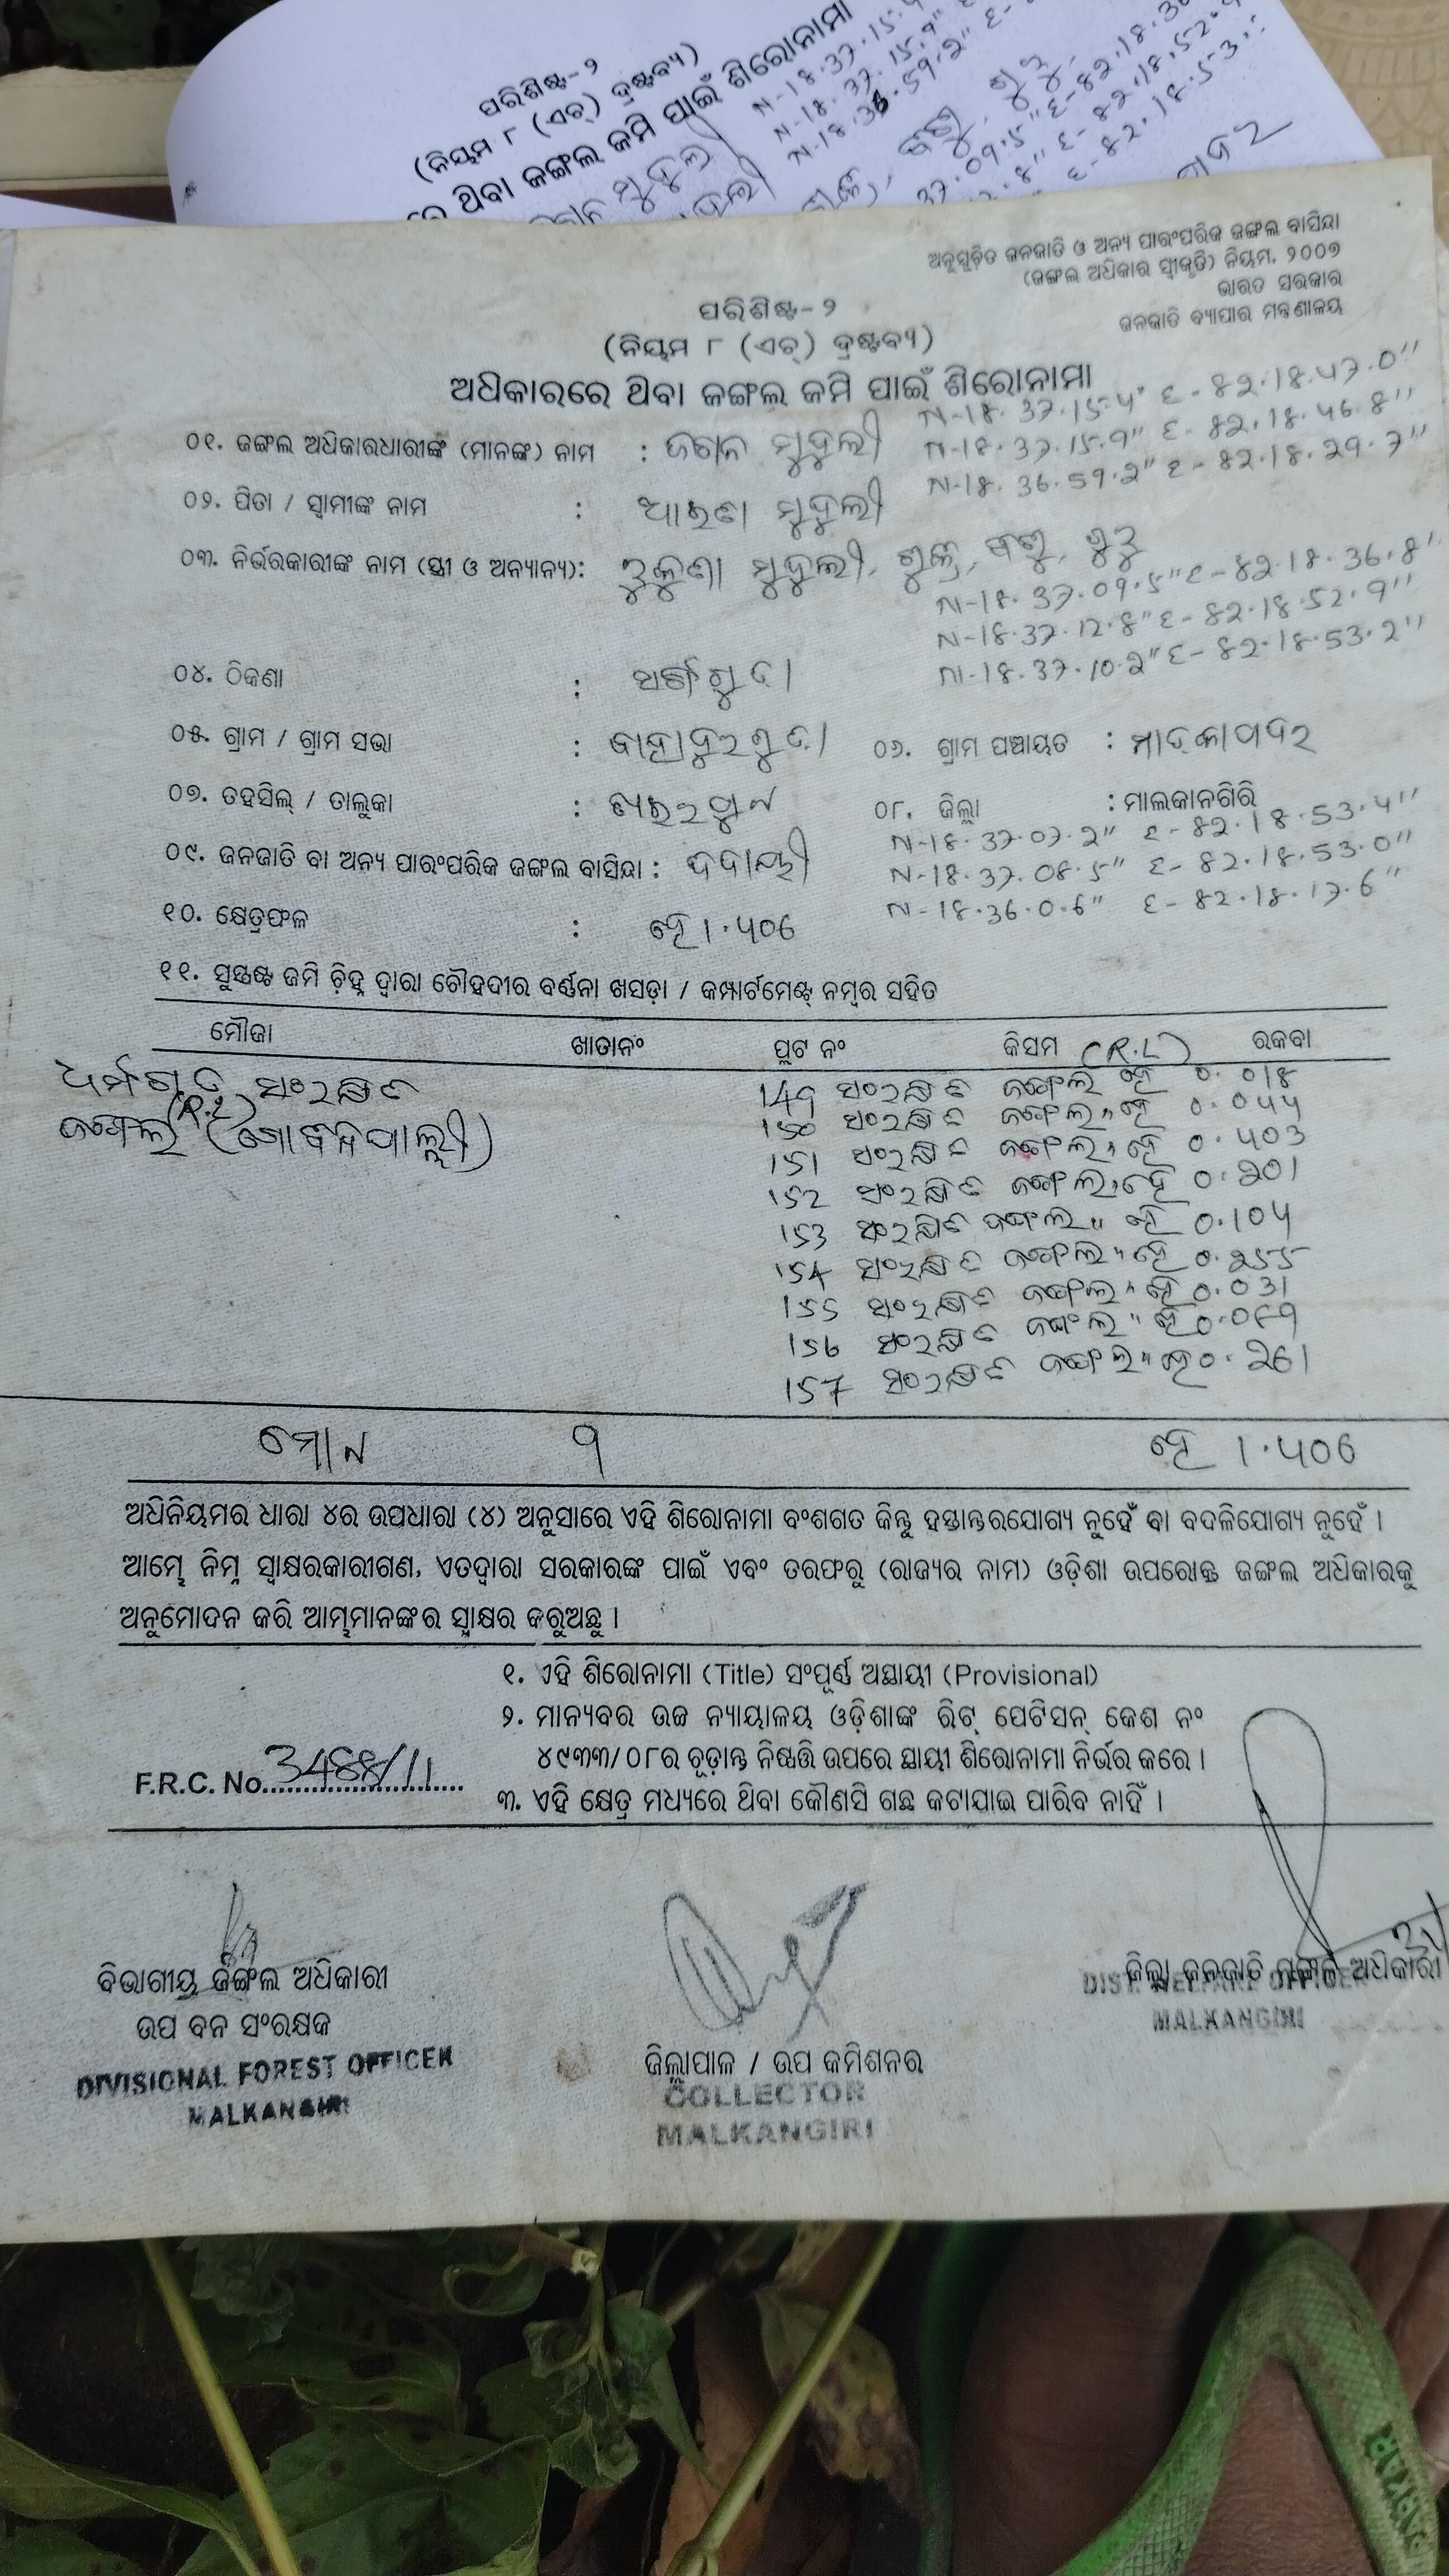 ପରିଶିଷ୍ଟ-୨
(ନିୟମ ୮ (ଏଚ୍) ଦ୍ରଷ୍ଟବ୍ୟ)
ରେ ଥିବା ଜଙ୍ଗଲ ଜମି ପାଇଁ ଶିରୋନାମା
ଅନୁସୂଚିତ ଜନଜାତି ଓ ଅନ୍ୟ ପାରଂପରିକ ଜଙ୍ଗଲ ବାସିନ୍ଦା
(ଜଙ୍ଗଲ ଅଧିକାର ସ୍ୱୀକୃତି) ନିୟମ, ୨୦୦୭
ଭାରତ ସରକାର
ଜନଜାତି ବ୍ୟାପାର ମନ୍ତ୍ରଣାଳୟ
ପରିଶିଷ୍ଟ-୨
(ନିୟମ ୮ (ଏଚ୍) ଦ୍ରଷ୍ଟବ୍ୟ)
ଅଧିକାରରେ ଥିବା ଜଙ୍ଗଲ ଜମି ପାଇଁ ଶିରୋନାମା
N-18.37.15.4" E-82.18.47.0"
୦୧. ଜଙ୍ଗଲ ଅଧିକାରଧାରୀଙ୍କ (ମାନଙ୍କ) ନାମ : ଜଗନ ମୁଦୁଲୀ N-18.37.15.9" E-82.18.46.8"
N-18.36.59.2" E-82.18.29.7"
୦୨. ପିତା / ସ୍ୱାମୀଙ୍କ ନାମ : ମୁଦୁଲୀ
୦୩. ନିର୍ଭରକାରୀଙ୍କ ନାମ (ସ୍ତ୍ରୀ ଓ ଅନ୍ୟାନ୍ୟ): ମୁଦୁଲୀ,
N-18.37.09.5" E-82.18.36.8"
N-18.37.12.8" E-82.18.52.9"
N-18.37.10.2" E-82.18.53.2"
୦୪. ଠିକଣା :
୦୫. ଗ୍ରାମ / ଗ୍ରାମ ସଭା : ବାହାଦୁରଗୁଡା ୦୬. ଗ୍ରାମ ପଞ୍ଚାୟତ :
୦୭. ତହସିଲ୍ / ତାଲୁକା : ଖଇରପୁଟ ୦୮. ଜିଲ୍ଲା : ମାଲକାନଗିରି
N-18.37.07.2" E-82.18.53.4"
୦୯. ଜନଜାତି ବା ଅନ୍ୟ ପାରଂପରିକ ଜଙ୍ଗଲ ବାସିନ୍ଦା : N-18.37.08.5" E-82.18.53.0"
N-18.36.0.6" E-82.18.17.6"
୧୦. କ୍ଷେତ୍ରଫଳ : ହେ 1.406
୧୧. ସୁସ୍ପଷ୍ଟ ଜମି ଚିହ୍ନ ଦ୍ୱାରା ଚୌହଦୀର ବର୍ଣ୍ଣନା ଖସଡ଼ା / କମ୍ପାର୍ଟମେଣ୍ଟ୍ ନମ୍ବର ସହିତ
ମୌଜା ଖାତାନଂ ପ୍ଲଟ ନଂ କିସମ ରକବା
ସଂରକ୍ଷିତ 149 ସଂରକ୍ଷିତ ଜଙ୍ଗଲ ହେ 0.018
ଜଙ୍ଗଲ (ଗୋବିନ୍ଦପାଲ୍ଲୀ) 150 ସଂରକ୍ଷିତ ଜଙ୍ଗଲ " ହେ 0.044
151 ସଂରକ୍ଷିତ ଜଙ୍ଗଲ " ହେ 0.403
152 ସଂରକ୍ଷିତ ଜଙ୍ଗଲ " ହେ 0.201
153 ସଂରକ୍ଷିତ ଜଙ୍ଗଲ " ହେ 0.104
154 ସଂରକ୍ଷିତ ଜଙ୍ଗଲ " ହେ 0.255
155 ସଂରକ୍ଷିତ ଜଙ୍ଗଲ " ହେ 0.031
156 ସଂରକ୍ଷିତ ଜଙ୍ଗଲ " ହେ 0.089
157 ସଂରକ୍ଷିତ ଜଙ୍ଗଲ " ହେ 0.261
ମୋଟ 9 ହେ 1.406
ଅଧିନିୟମର ଧାରା ୪ର ଉପଧାରା (୪) ଅନୁସାରେ ଏହି ଶିରୋନାମା ବଂଶଗତ କିନ୍ତୁ ହସ୍ତାନ୍ତରଯୋଗ୍ୟ ନୁହେଁ ବା ବଦଳିଯୋଗ୍ୟ ନୁହେଁ ।
ଆମ୍ଭେ ନିମ୍ନ ସ୍ୱାକ୍ଷରକାରୀଗଣ, ଏତଦ୍ୱାରା ସରକାରଙ୍କ ପାଇଁ ଏବଂ ତରଫରୁ (ରାଜ୍ୟର ନାମ) ଓଡ଼ିଶା ଉପରୋକ୍ତ ଜଙ୍ଗଲ ଅଧିକାରକୁ
ଅନୁମୋଦନ କରି ଆମ୍ଭମାନଙ୍କର ସ୍ୱାକ୍ଷର କରୁଅଛୁ ।
୧. ଏହି ଶିରୋନାମା (Title) ସଂପୂର୍ଣ୍ଣ ଅସ୍ଥାୟୀ (Provisional)
୨. ମାନ୍ୟବର ଉଚ୍ଚ ନ୍ୟାୟାଳୟ ଓଡ଼ିଶାଙ୍କ ରିଟ୍ ପେଟିସନ୍ କେଶ ନଂ
୪୯୩୩/୦୮ର ଚୂଡ଼ାନ୍ତ ନିଷ୍ପତ୍ତି ଉପରେ ସ୍ଥାୟୀ ଶିରୋନାମା ନିର୍ଭର କରେ ।
F.R.C. No. 3488/11
୩. ଏହି କ୍ଷେତ୍ର ମଧ୍ୟରେ ଥିବା କୌଣସି ଗଛ କଟାଯାଇ ପାରିବ ନାହିଁ ।
ବିଭାଗୀୟ ଜଙ୍ଗଲ ଅଧିକାରୀ
ଉପ ବନ ସଂରକ୍ଷକ
DIVISIONAL FOREST OFFICER
MALKANGIRI
ଜିଲ୍ଲାପାଳ / ଉପ କମିଶନର
COLLECTOR
MALKANGIRI
ଜିଲ୍ଲା ଜନଜାତି ମଙ୍ଗଳ ଅଧିକାରୀ
DIST. WELFARE OFFICER
MALKANGIRI